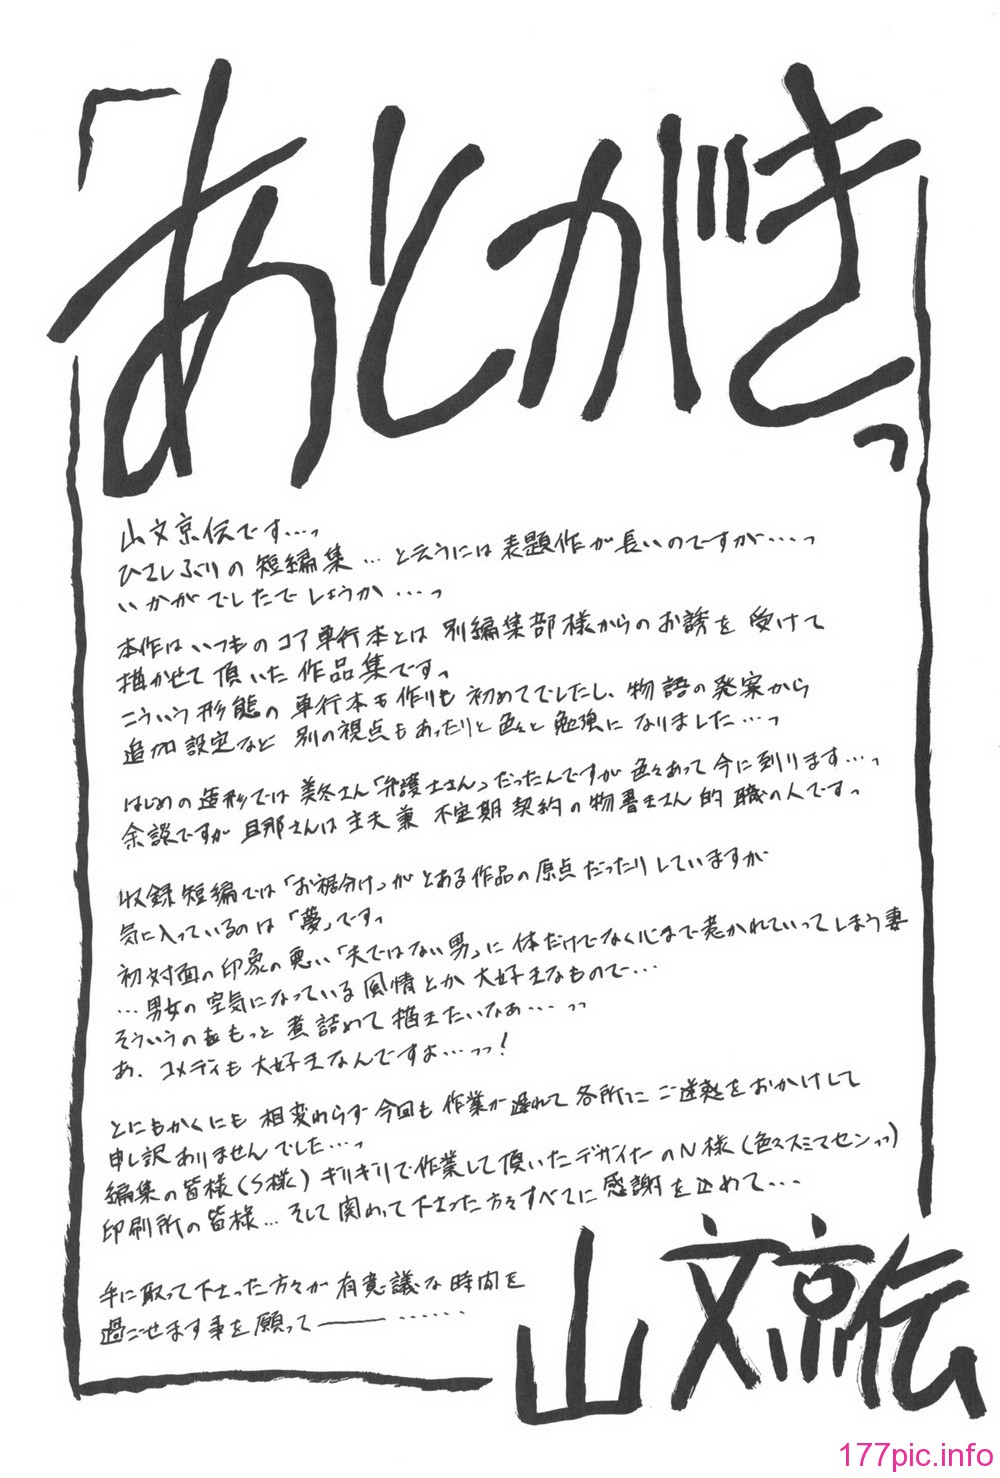 「あとがきっ
山文京伝です…っ
ひさしぶりの短編集…と云うには表題作が長いのですが……っ
いかがでしたでしょうか…っ
本作はいつものコア単行本とは別編集部様からのお誘を受けて
描かせて頂いた作品集ですっ
こういう形態の単行本を作りも初めてでしたし、物語の発案から
追加設定など別の視点もあったりと色々と勉強になりました…っ
はじめの造形では美冬さん「弁護士さん」だったんですが色々あって今に到ります…っ
余談ですが旦那さんは主夫兼不定期契約の物書きさん的職の人ですっ
収録短編では「お裾分け」がとある作品の原点だったりしていますが
気に入っているのは「夢」ですっ
初対面の印象の悪い「夫ではない男」に体だけでなく心まで惹かれていってしまう妻
…男女の空気になっている風情とか大好きなもので…
そういうのをもっと煮詰めて描きたいなぁ…っっ
あ、コメディも大好きなんですよ…っっ!
とにもかくにも相変わらず今回も作業が遅れて各所にご迷惑をおかけして
申し訳ありませんでした…っ
編集の皆様(S様)ギリギリで作業して頂いたデザイナーのN様(色々スミマセンっっ)
印刷所の皆様…そして関わって下さった方々すべてに感謝を込めて…
手に取って下さった方々が有意議な時間を
過ごせます事を願って――……
山文京伝
177pic.info